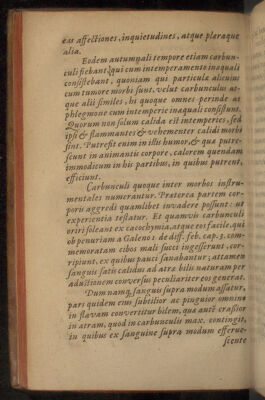 eas affectiones, inquietudines, atque pleraque
alia.
Eodem autumnali tempore etiam carbun-
culi fiebant, qui cum intemperamento inæquali
consistebant, quoniam qui particulæ alicuius
cum tumore morbi sunt, velut carbunculus at-
que alii similes, hi quoque omnes perinde ac
phlegmone cum intemperie inæquali consistunt.
Quorum non solum calida est intemperies, sed
ipsi & flammantes & vehementer calidi morbi
sint. Putrescit enim in illis humor, & quæ putre-
scunt in animantis corpore, calorem quendam
immodicum in his partibus, in quibus putrent,
efficiunt.
Carbunculi quoque inter morbos instru-
mentales numerantur. Præterea partem cor-
poris aggredi quamlibet invadere possunt: ut
experientia testatur. Et quamvis carbunculi
oriri soleant ex cacochymia, atque eos facile, qui
ob penuriam a Galeno 1. de diff. feb. cap. 3. com-
memoratam cibos mali succi ingesserunt, cor-
ripiunt, ex quibus pauci sanabantur; attamen
sanguis satis calidus ad atra bilis naturam per
adustionem conversus peculiariter eos generat.
Dum namque sanguis supra modum assatur,
pars quidem eius subtilior ac pinguior omnino
in flavam convertitur bilem, quæ autē crassior
in atram, quod in carbunculis max. contingit,
in quibus ex sanguine supra modum efferue-
scente